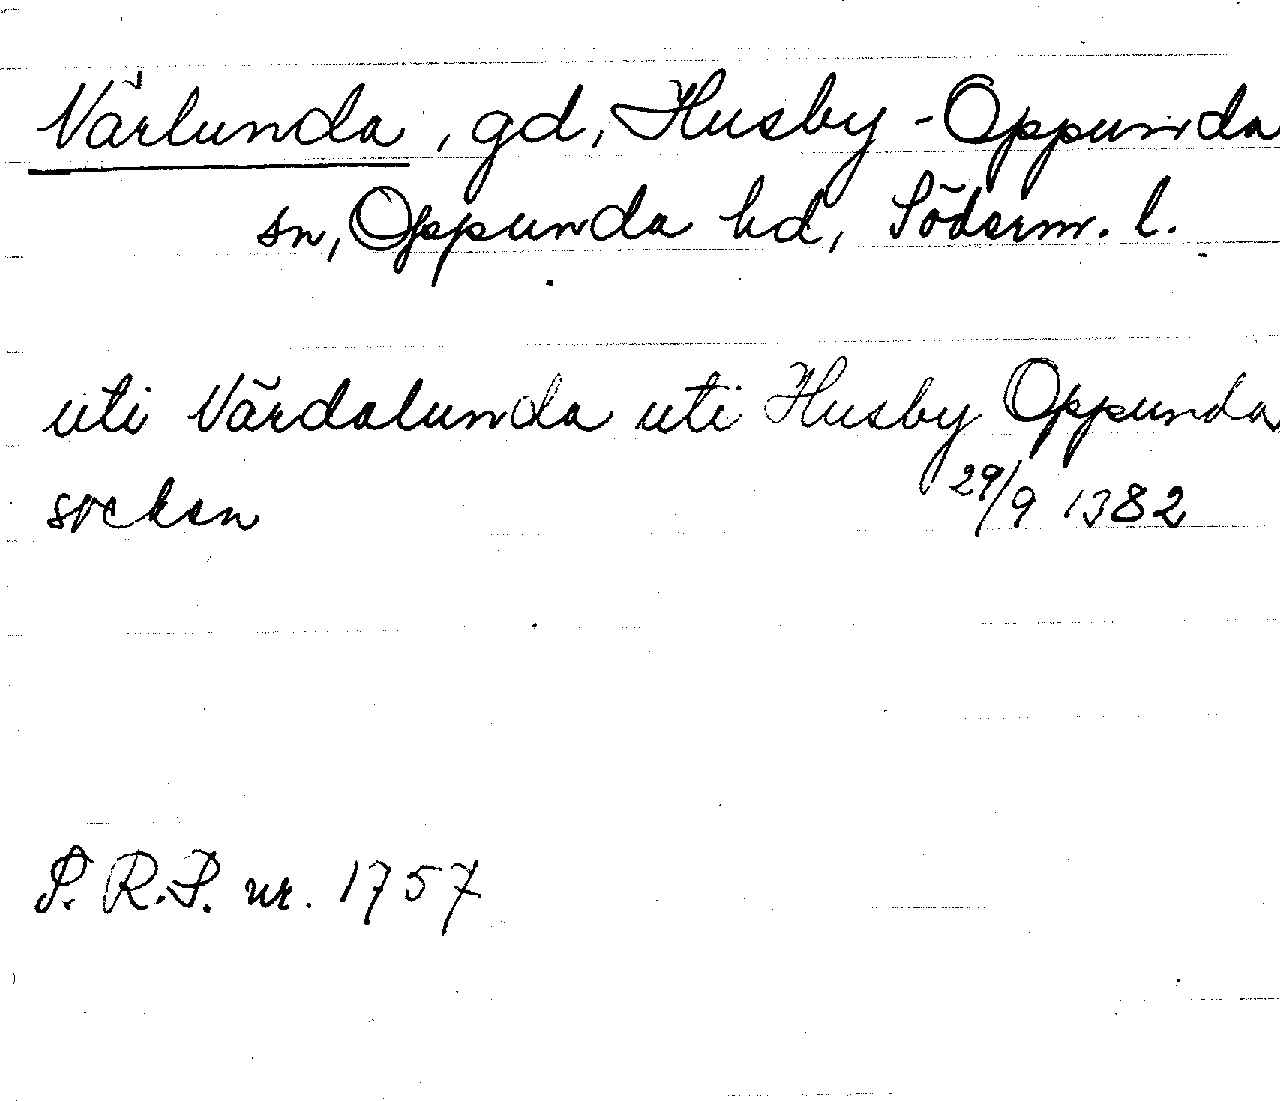 Värlunda, gd, Husby-Oppunda
sn, Oppunda hd, Söderm. l.
uti Värdalunda uti Husby Oppunda
socken 29/9 1382
S. R. P. nr. 1757